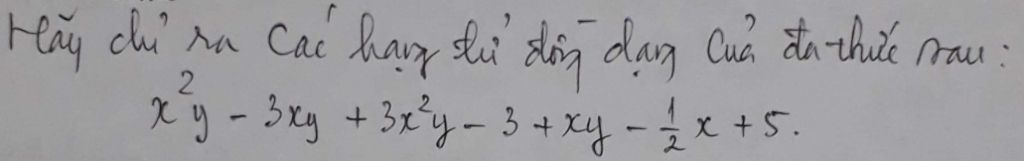 Hãy chỉ ra các hạng tử đồng dạng của đa thức sau:
x²y - 3xy + 3x²y - 3 + xy - ½x + 5.